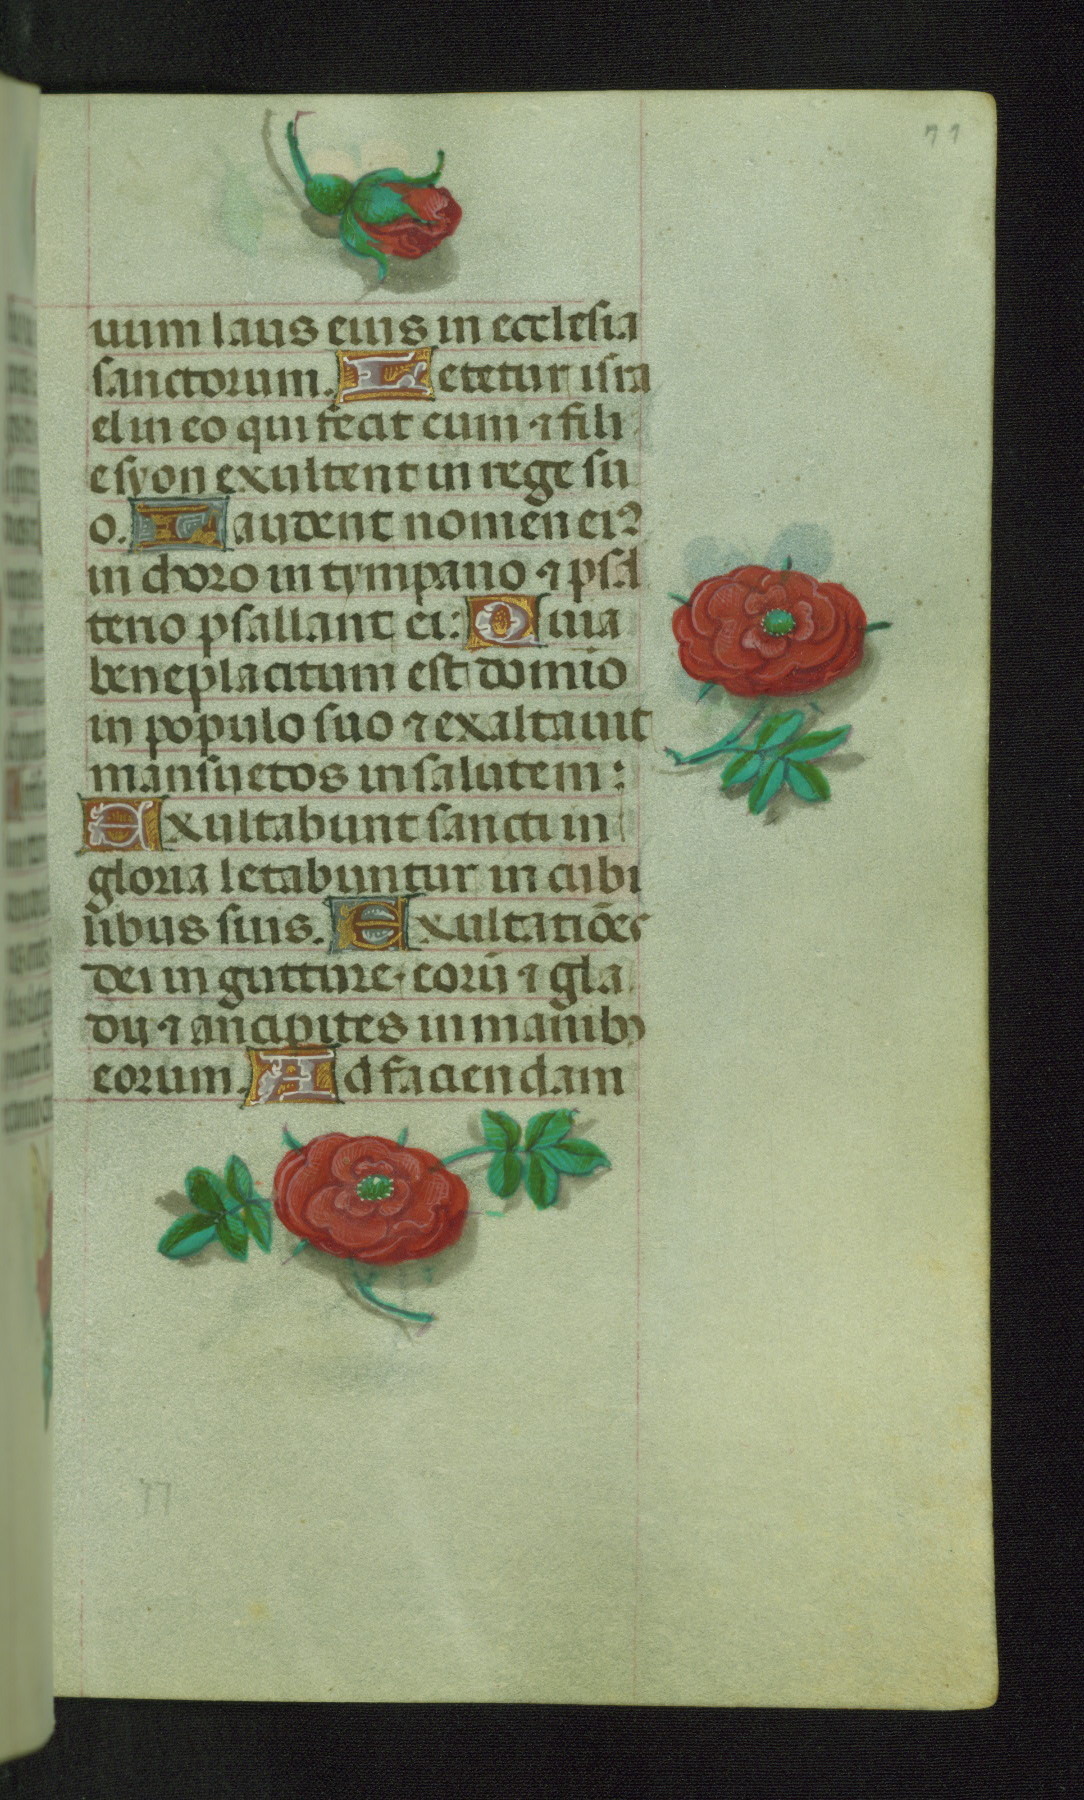 77
uum laus eius in ecclesia
sanctorum. Letetur isra
el in eo qui fecit cum ⁊ fili
e syon exultent in rege su
o. Laudent nomen eiꝰ
in choro in tympano ⁊ psal
terio psallant ei: Quia
beneplacitum est domio
in populo suo ⁊ exaltauit
mansuetos in salutem:
Exultabunt sancti in
gloria letabuntur in cubi
libus suis. Exultatiões
dei in gutture eorū ⁊ gla
dii ⁊ ancipites in manibꝰ
eorum. Ad faciendam
77